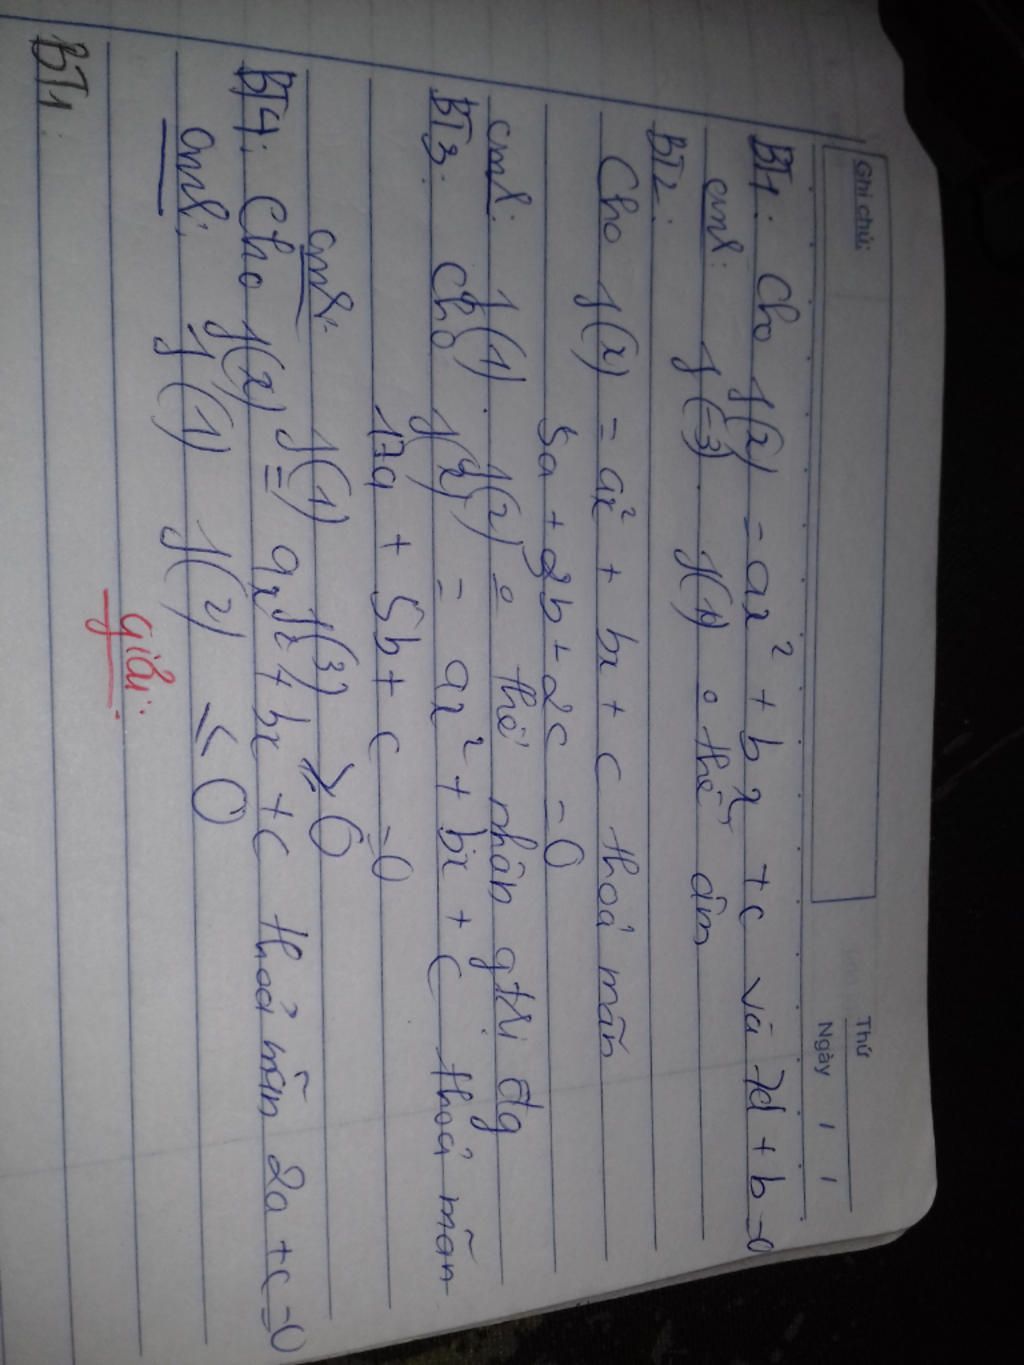 Ghi chú:
Thứ
Ngày / /
BT1: Cho f(x) = ax² + bx + c và 7a + b = 0
cmR: f(-3). f(10) o thể âm
BT2:
Cho f(x) = ax² + bx + c thoả mãn
5a + 2b + 2c = 0
cmR: f(1). f(2) o thể nhận gtri dg
BT3: Cho f(x) = ax² + bx + c thoả mãn
17a + 5b + c = 0
cmR: f(1) f(3) ≥ 0
BT4: Cho f(x) = ax² + bx + c thoả mãn 2a + c = 0
cmR: f(1) f(2) ≤ 0
giải:
BT1: